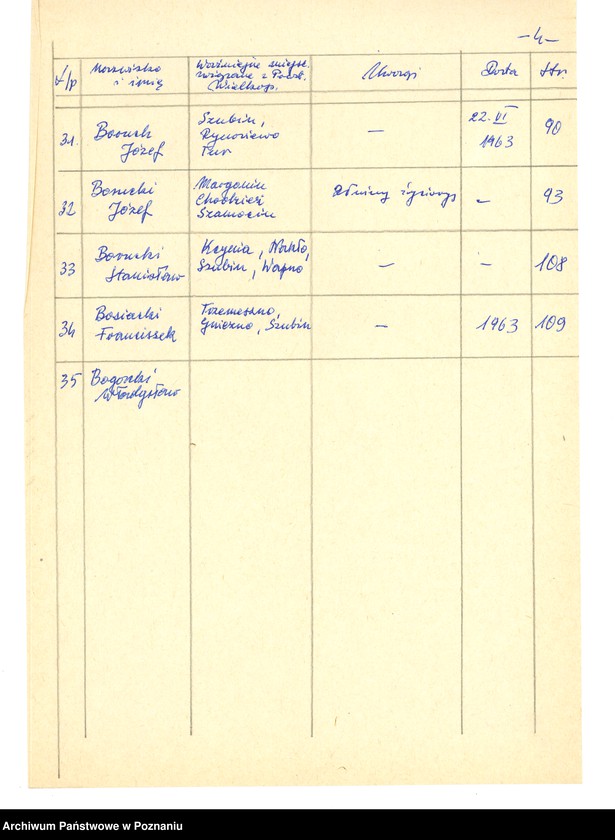 -4-
L/p
Nazwisko
i imię
Ważniejsze miejsc.
związane z Powst.
Wielkop.
Uwagi
Data
Str.
31.
Boruch
Józef
Szubin,
Rynarzewo
Tur
—
22. VI
1963
90
32
Józef
Margonin
Chodzież
Szamocin
życiorys
—
93
33
Borucki
Stanisław
Kcynia, Nakło,
Szubin, Wapno
—
—
108
34
Bosiacki
Franciszek
Trzemeszno,
Gniezno, Szubin
—
1963
109
35
Władysław
Archiwum Państwowe w Poznaniu